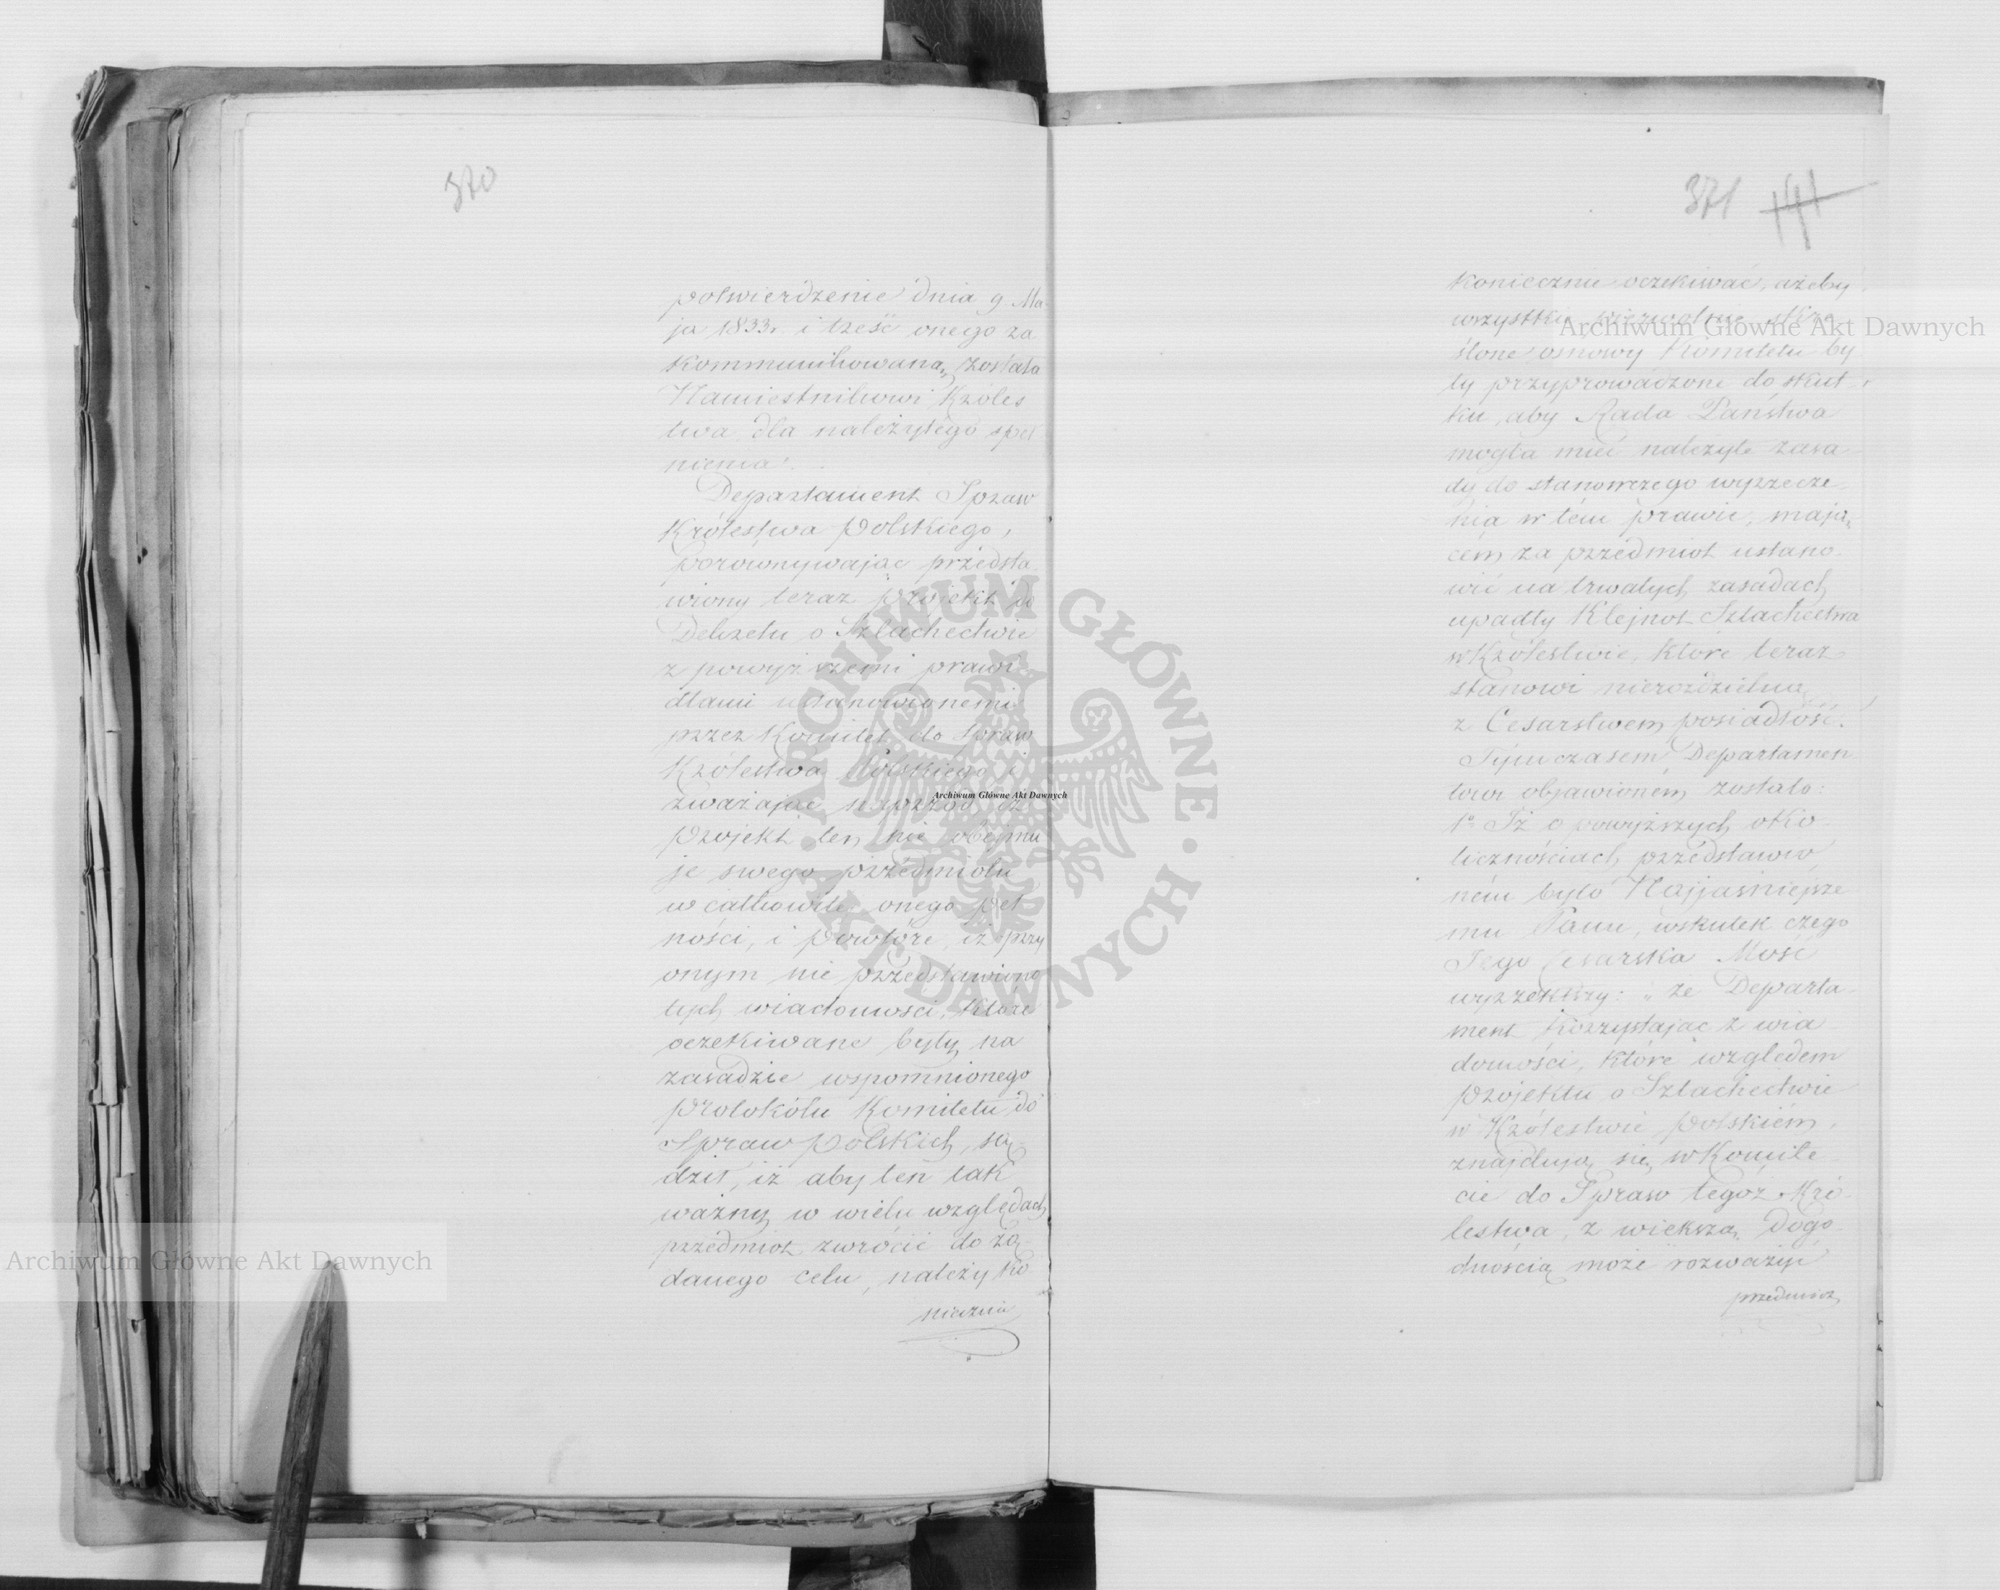 370
potwierdzenie dnia 9 Ma-
ja 1833 r. i treść onego za
kommunikowaną została
Namiestnikowi Króles
twa dla należytego speł
nienia.
Departament Spraw
Królestwa Polskiego,
porównywając przedsta
wiony teraz projekt do
Dekretu o Szlachectwie
z powyższemi prawi
dłami ustanowionemi
przez Komitet do Spraw
Królestwa Polskiego i
zważając naprzód iż
projekt ten nie obejmu
je swego przedmiotu
w całkowitej onego peł
ności, i powtóre, iż przy
onym nie przedstawiono
tych wiadomości, które
oczekiwane były na
zasadzie wspomnionego
protokółu Komitetu do
Spraw Polskich, są
dził, iż aby ten tak
ważny w wielu względach
przedmiot zwrócić do żą-
danego celu, należy ko
niecznie
371 141
koniecznie oczekiwać, ażeby
wszystkie pierwotne skre
ślone osnowy Komitetu by
ły przyprowadzone do skut-
ku, aby Rada Państwa
mogła mieć należyte zasa-
dy do stanowczego wyrzecze-
nia w tém prawie, mają-
cem za przedmiot ustano-
wić na trwałych zasadach
upadły Klejnot Szlachectwa
w Królestwie, które teraz
stanowi nierozdzielną
z Cesarstwem posiadłość.
Tymczasem Departamen
towi objawioném zostało:
1º Iż o powyższych oko-
licznościach przedstawio
ném było Najjaśniejsze
mu Panu, wskutek czego
Jego Cesarska Mość
wyrzekłszy: "że Departa-
ment korzystając z wia-
domości, które względem
projektu o Szlachectwie
w Królestwie Polskiém,
znajdują się w Komite-
cie do Spraw tegoż Kró-
lestwa, z większą dogo-
dnością może rozważyć
przedmiot
Archiwum Główne Akt Dawnych
Archiwum Główne Akt Dawnych
Archiwum Główne Akt Dawnych
ARCHIWUM GŁÓWNE · AKT DAWNYCH ·